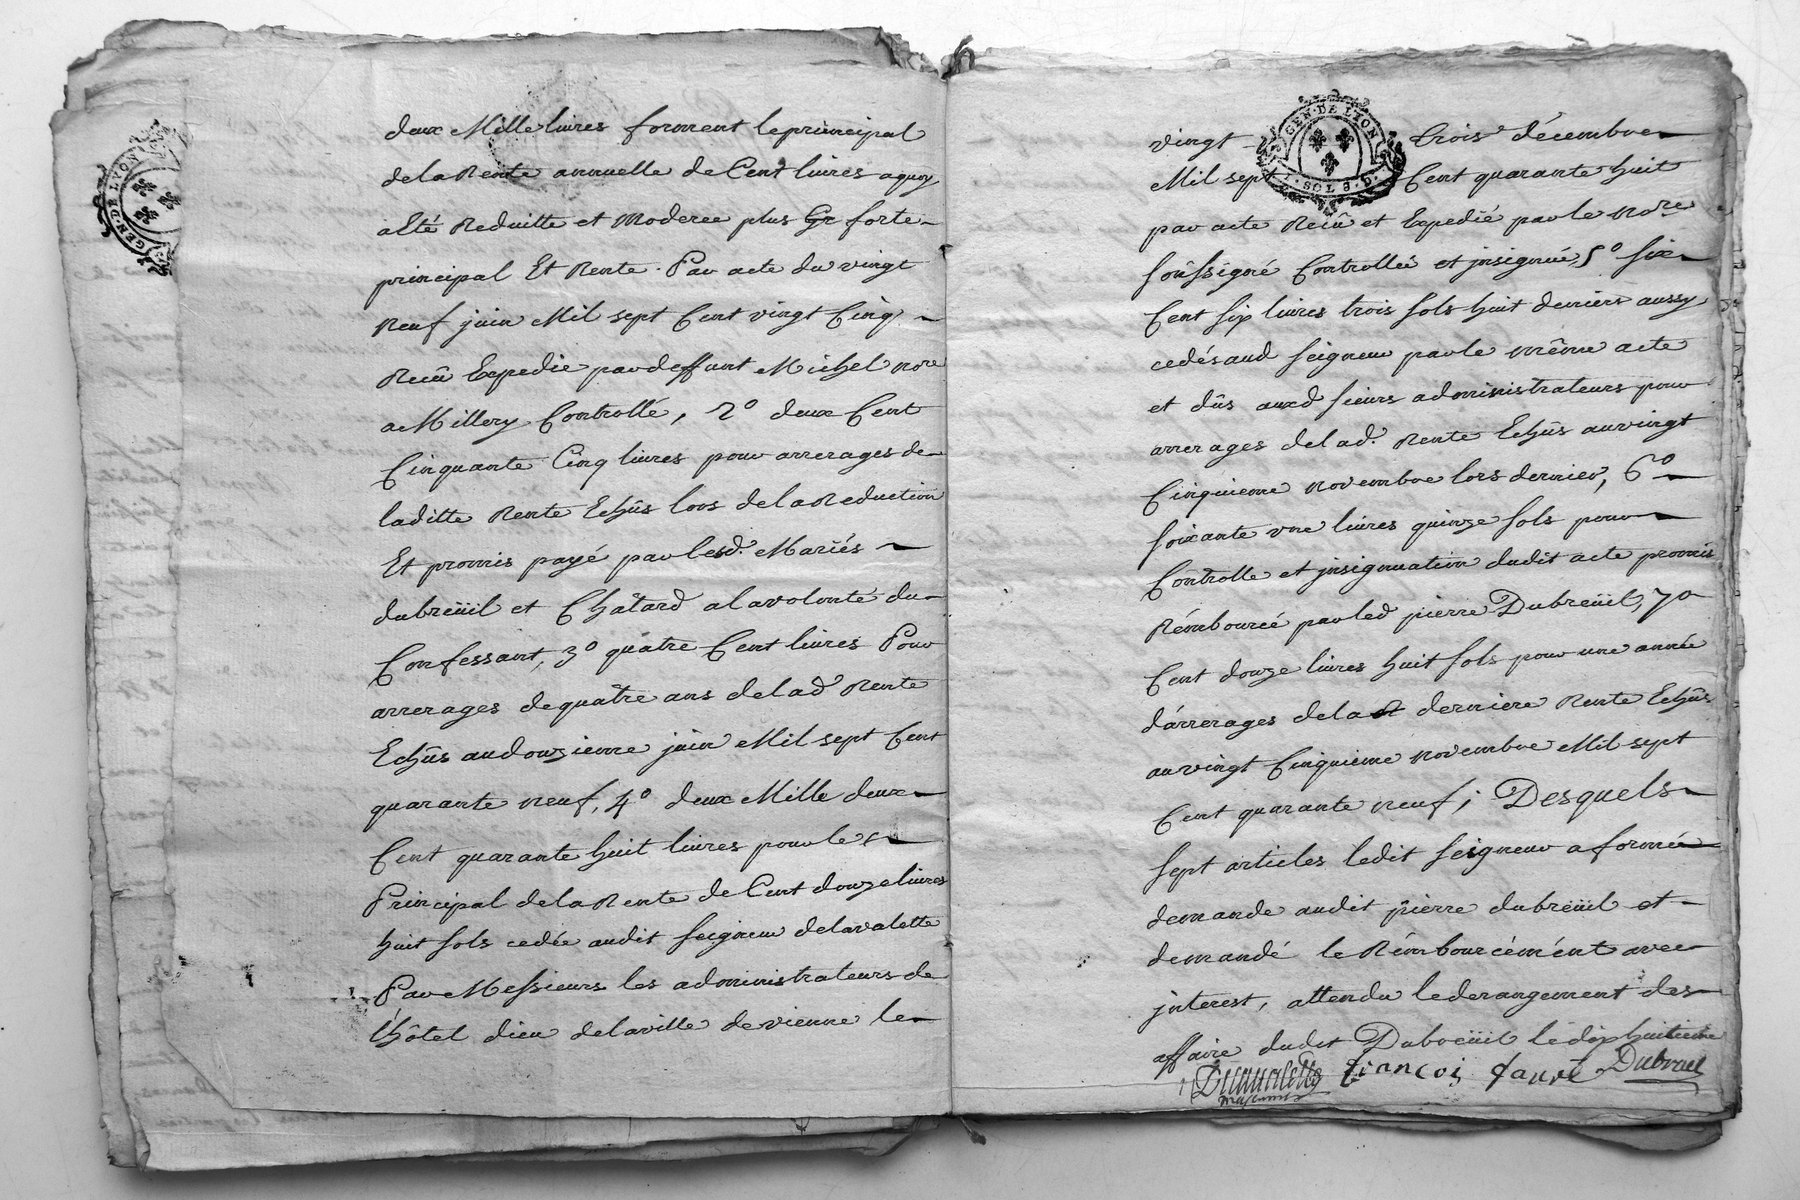 deux Mille livres forment leprincipal
delaRente annuelle de Cent livres aquoy
a Eté Reduitte et moderee plus Gr forte
principal Et Rente. Par acte du vingt
neuf juin Mil sept Cent vingt Cinq
Reçu Expedie par deffunt Michel nore
a Millery Controllé, 2º deux Cent
Cinquante Cinq livres pour arrerages de
laditte Rente Echûs lors de la Reduction
Et promis payé par lesd. Mariés
dubreüil et Châtard alavolonté du
Confessant, 3º quâtre Cent livres Pour
arrerages de quâtre ans delad Rente
Echûs audouzieme juin Mil sept Cent
quarante neuf, 4º deux Mille deux
Cent quarante huit livres pour le
Principal delaRente de Cent douze livres
huit sols cedée audit seigneur delavalette
Par Messieurs les administrateurs de
l'hôtel dieu delaville de vienne le
GEN. DE LYON
vingt trois décembre
GEN. DE LYON
1. SOL 8. D.
Mil sept Cent quarante huit
par acte Reçû et Expedié par le nore
soûssigné Controllée et jnsignué, 5º six
Cent six livres trois sols huit deniers aussy
cedés aud seigneur par le même acte
et dûs auxd sieurs administrateurs pour
arrerages delad. Rente Echûs auvingt
Cinquieme novembre lors dernier, 6º
soixante une livres quinze sols pour
Controlle et jnsignuation dudit acte promis
Rémbourcé par led pierre Dubreüil, 7º
Cent douze livres huit sols pour une année
d'arrerages delad derniere Rente Echûs
auvingt Cinquieme novembre Mil sept
Cent quarante neuf; Desquels
sept articles ledit seigneur a formée
demande audit pierre dubreüil et
demandé le Rémbourcémént avec
jnterest, attendu lederangement des
affaire dudit Dubreüil le dix huitieme
françois faure Dubreuil